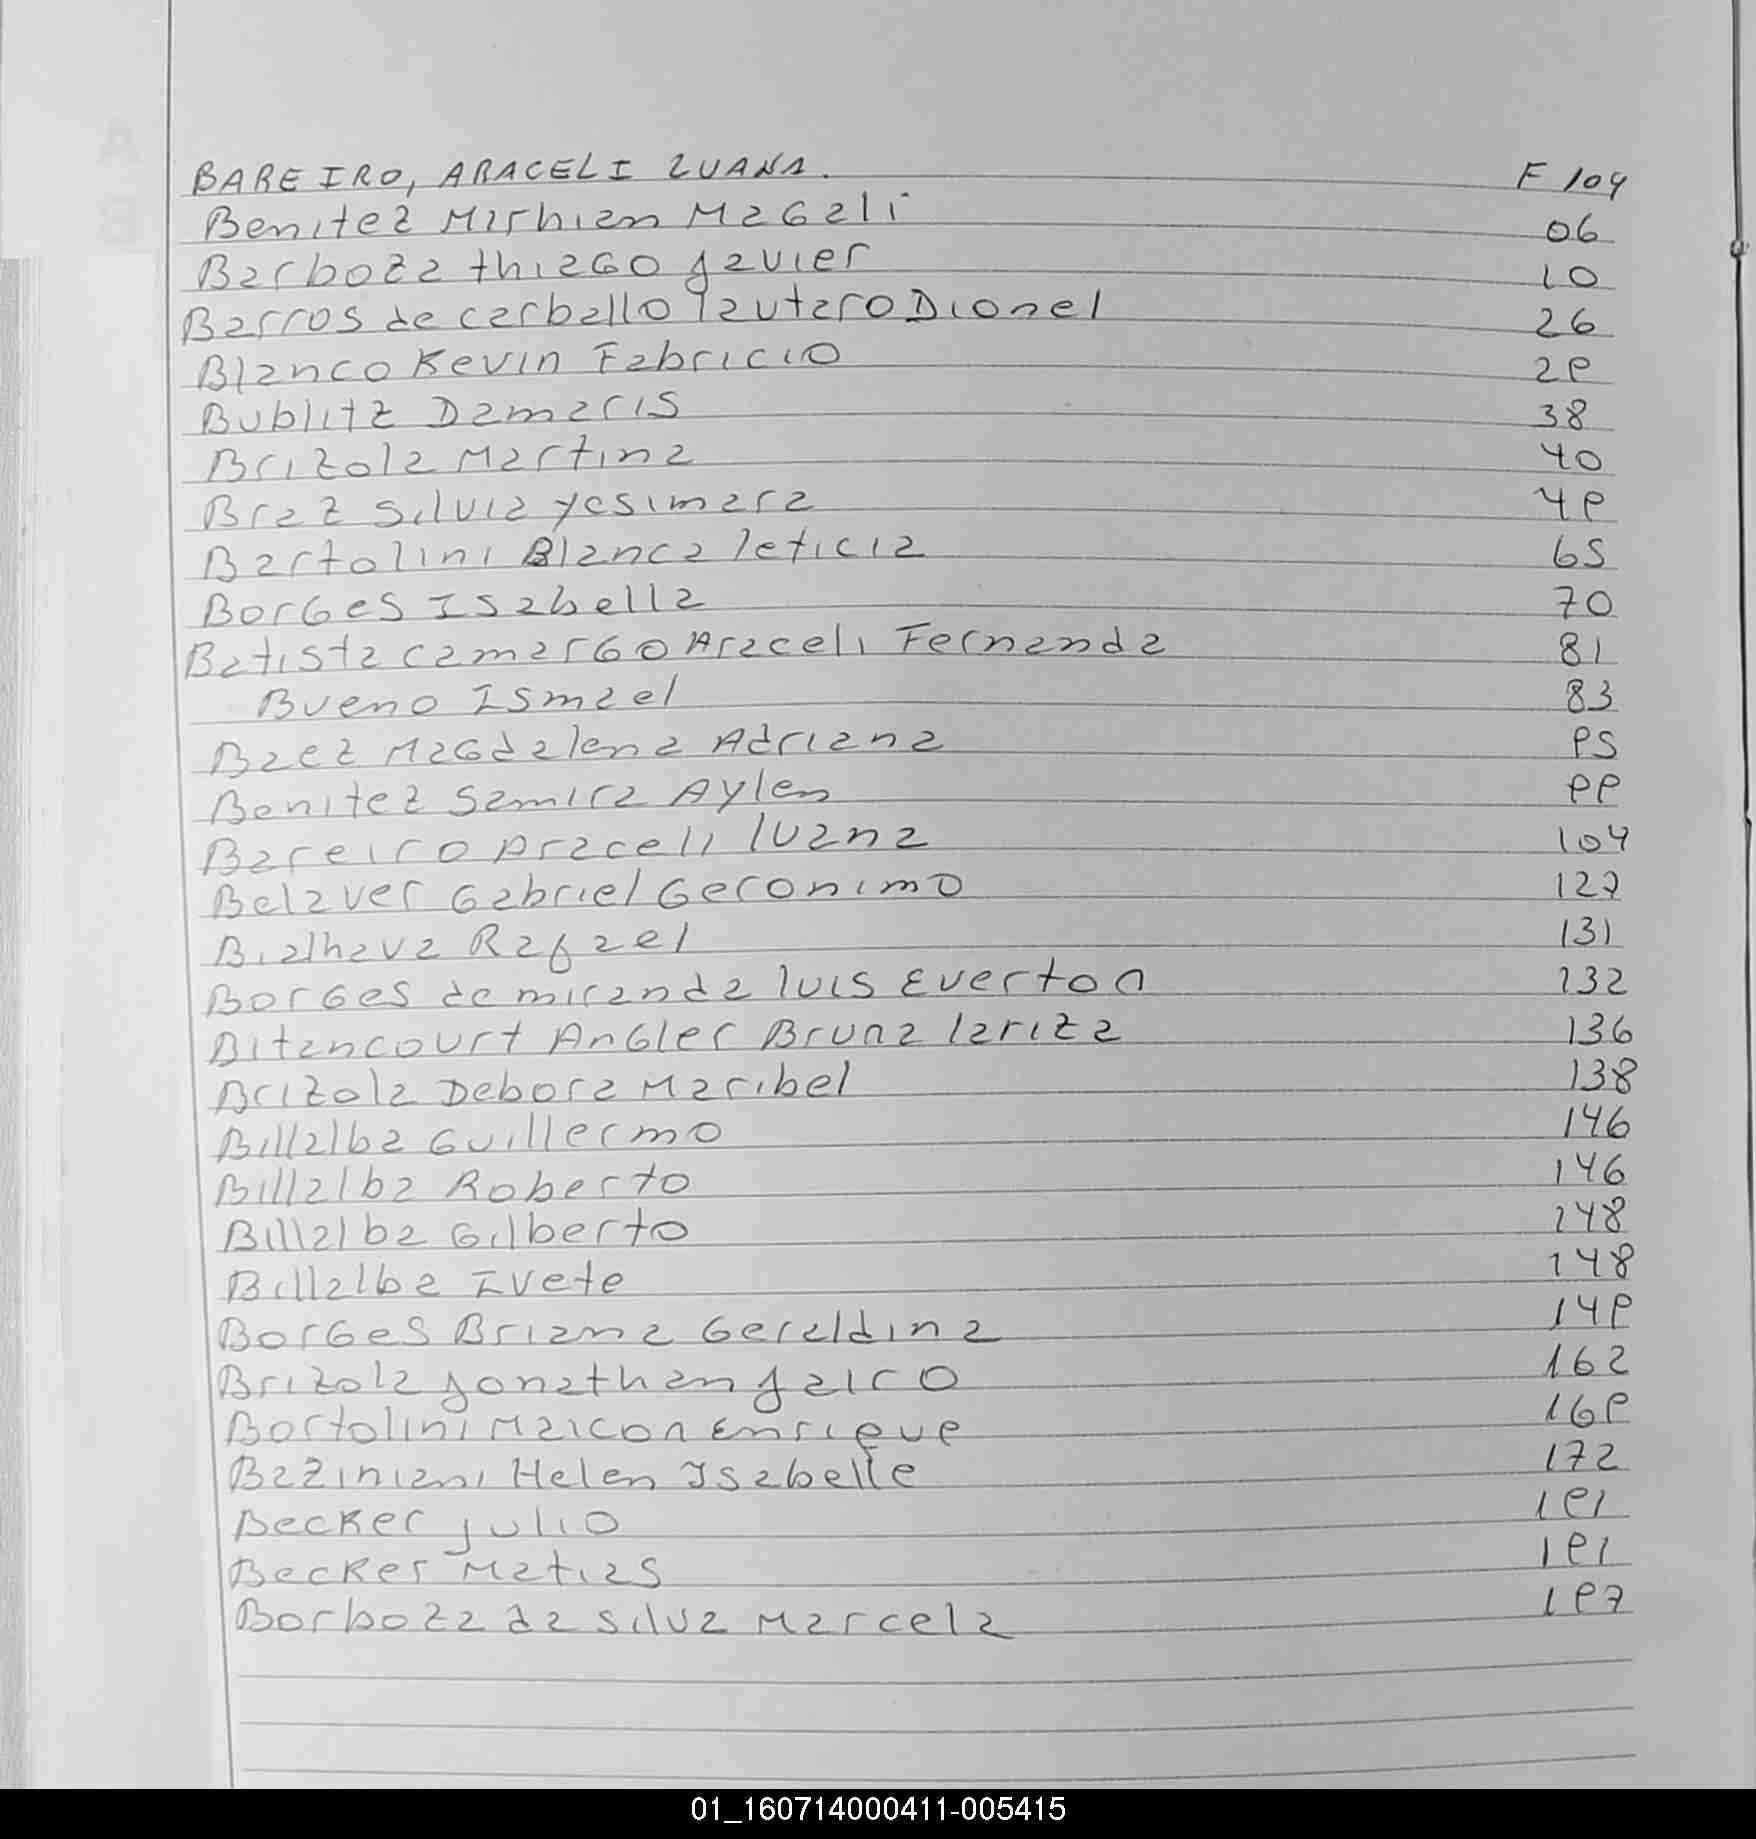 BAREIRO, ARACELI LUANA. F 104
Benitez Mirhian Magali 06
Barboza thiago javier 10
Barros de carballo lautaro Dionel 26
Blanco Kevin Fabricio 29
Bublitz Damaris 38
Brizola Martina 40
Braz Silvia yesimara 49
Bartolini Blanca leticia 65
Borges Isabella 70
Batista camargo Araceli Fernanda 81
Bueno Ismael 83
Baez Magdalena Adriana 95
Benitez Samira Aylen 99
Bareiro Araceli luana 104
Belaver Gabriel Geronimo 127
Bialhava Rafael 131
Borges de miranda luis Everton 132
Bitancourt Angler Bruna lariza 136
Brizola Debora Maribel 138
Billalba Guillermo 146
Billalba Roberto 146
Billalba Gilberto 148
Billalba Ivete 148
Borges Briana Geraldina 149
Brizola jonathan jairo 162
Bortolini Maicon Enrique 169
Baziniani Helen Isabelle 172
Becker julio 191
Becker Matias 191
Borboza da silva Marcela 197
01_160714000411-005415